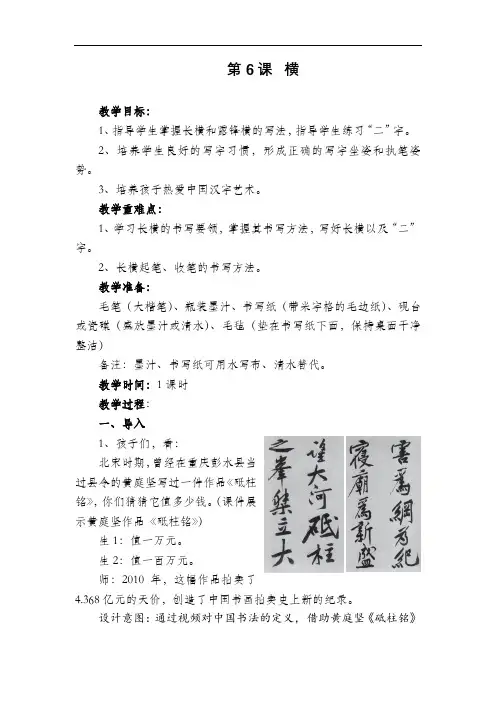 第6课 横
教学目标：
1、指导学生掌握长横和露锋横的写法，指导学生练习“二”字。
2、培养学生良好的写字习惯，形成正确的写字坐姿和执笔姿
势。
3、培养孩子热爱中国汉字艺术。
教学重难点：
1、学习长横的书写要领，掌握其书写方法，写好长横以及“二”
字。
2、长横起笔、收笔的书写方法。
教学准备：
毛笔（大楷笔）、瓶装墨汁、书写纸（带米字格的毛边纸）、砚台
或瓷碟（盛放墨汁或清水）、毛毡（垫在书写纸下面，保持桌面干净
整洁）
备注：墨汁、书写纸可用水写布、清水替代。
教学时间：1课时
教学过程：
一、导入
1、孩子们，看：
北宋时期，曾经在重庆彭水县当
过县令的黄庭坚写过一件作品《砥柱
铭》，你们猜猜它值多少钱。（课件展
示黄庭坚作品《砥柱铭》）
生1：值一万元。
生2：值一百万元。
师：2010 年，这幅作品拍卖了
害為綱為紀
寢廟為新盛
望大河砥柱
之峯桀立大
4.368亿元的天价，创造了中国书画拍卖史上新的纪录。
设计意图：通过视频对中国书法的定义，借助黄庭坚《砥柱铭》